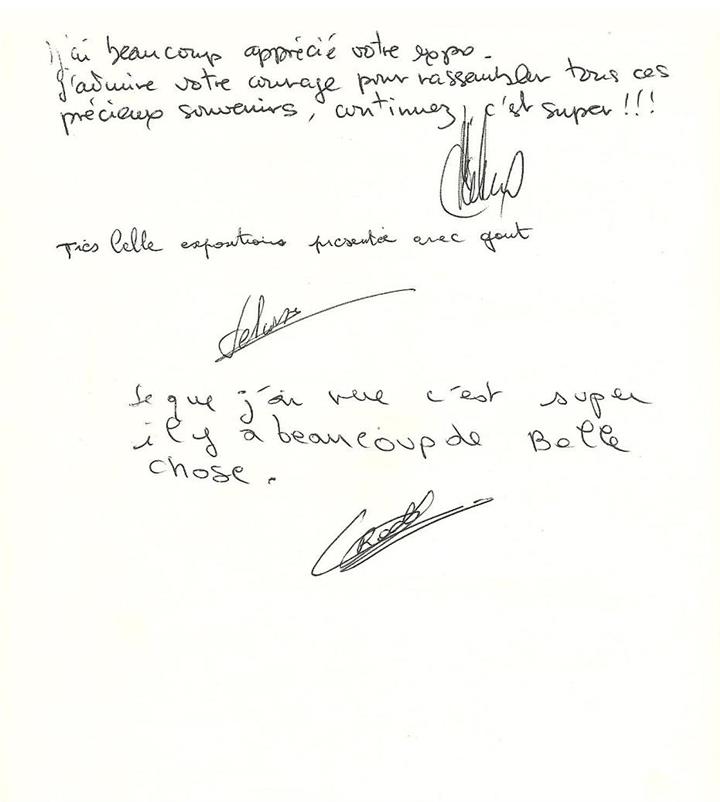 j'ai beaucoup apprécié votre expo.
J'admire votre courage pour rassembler tous ces
précieux souvenirs, continuez, c'est super !!!
Très belle expositions presentée avec gout
Se que j'ai vue c'est super
il y a beaucoup de Belle
chose.